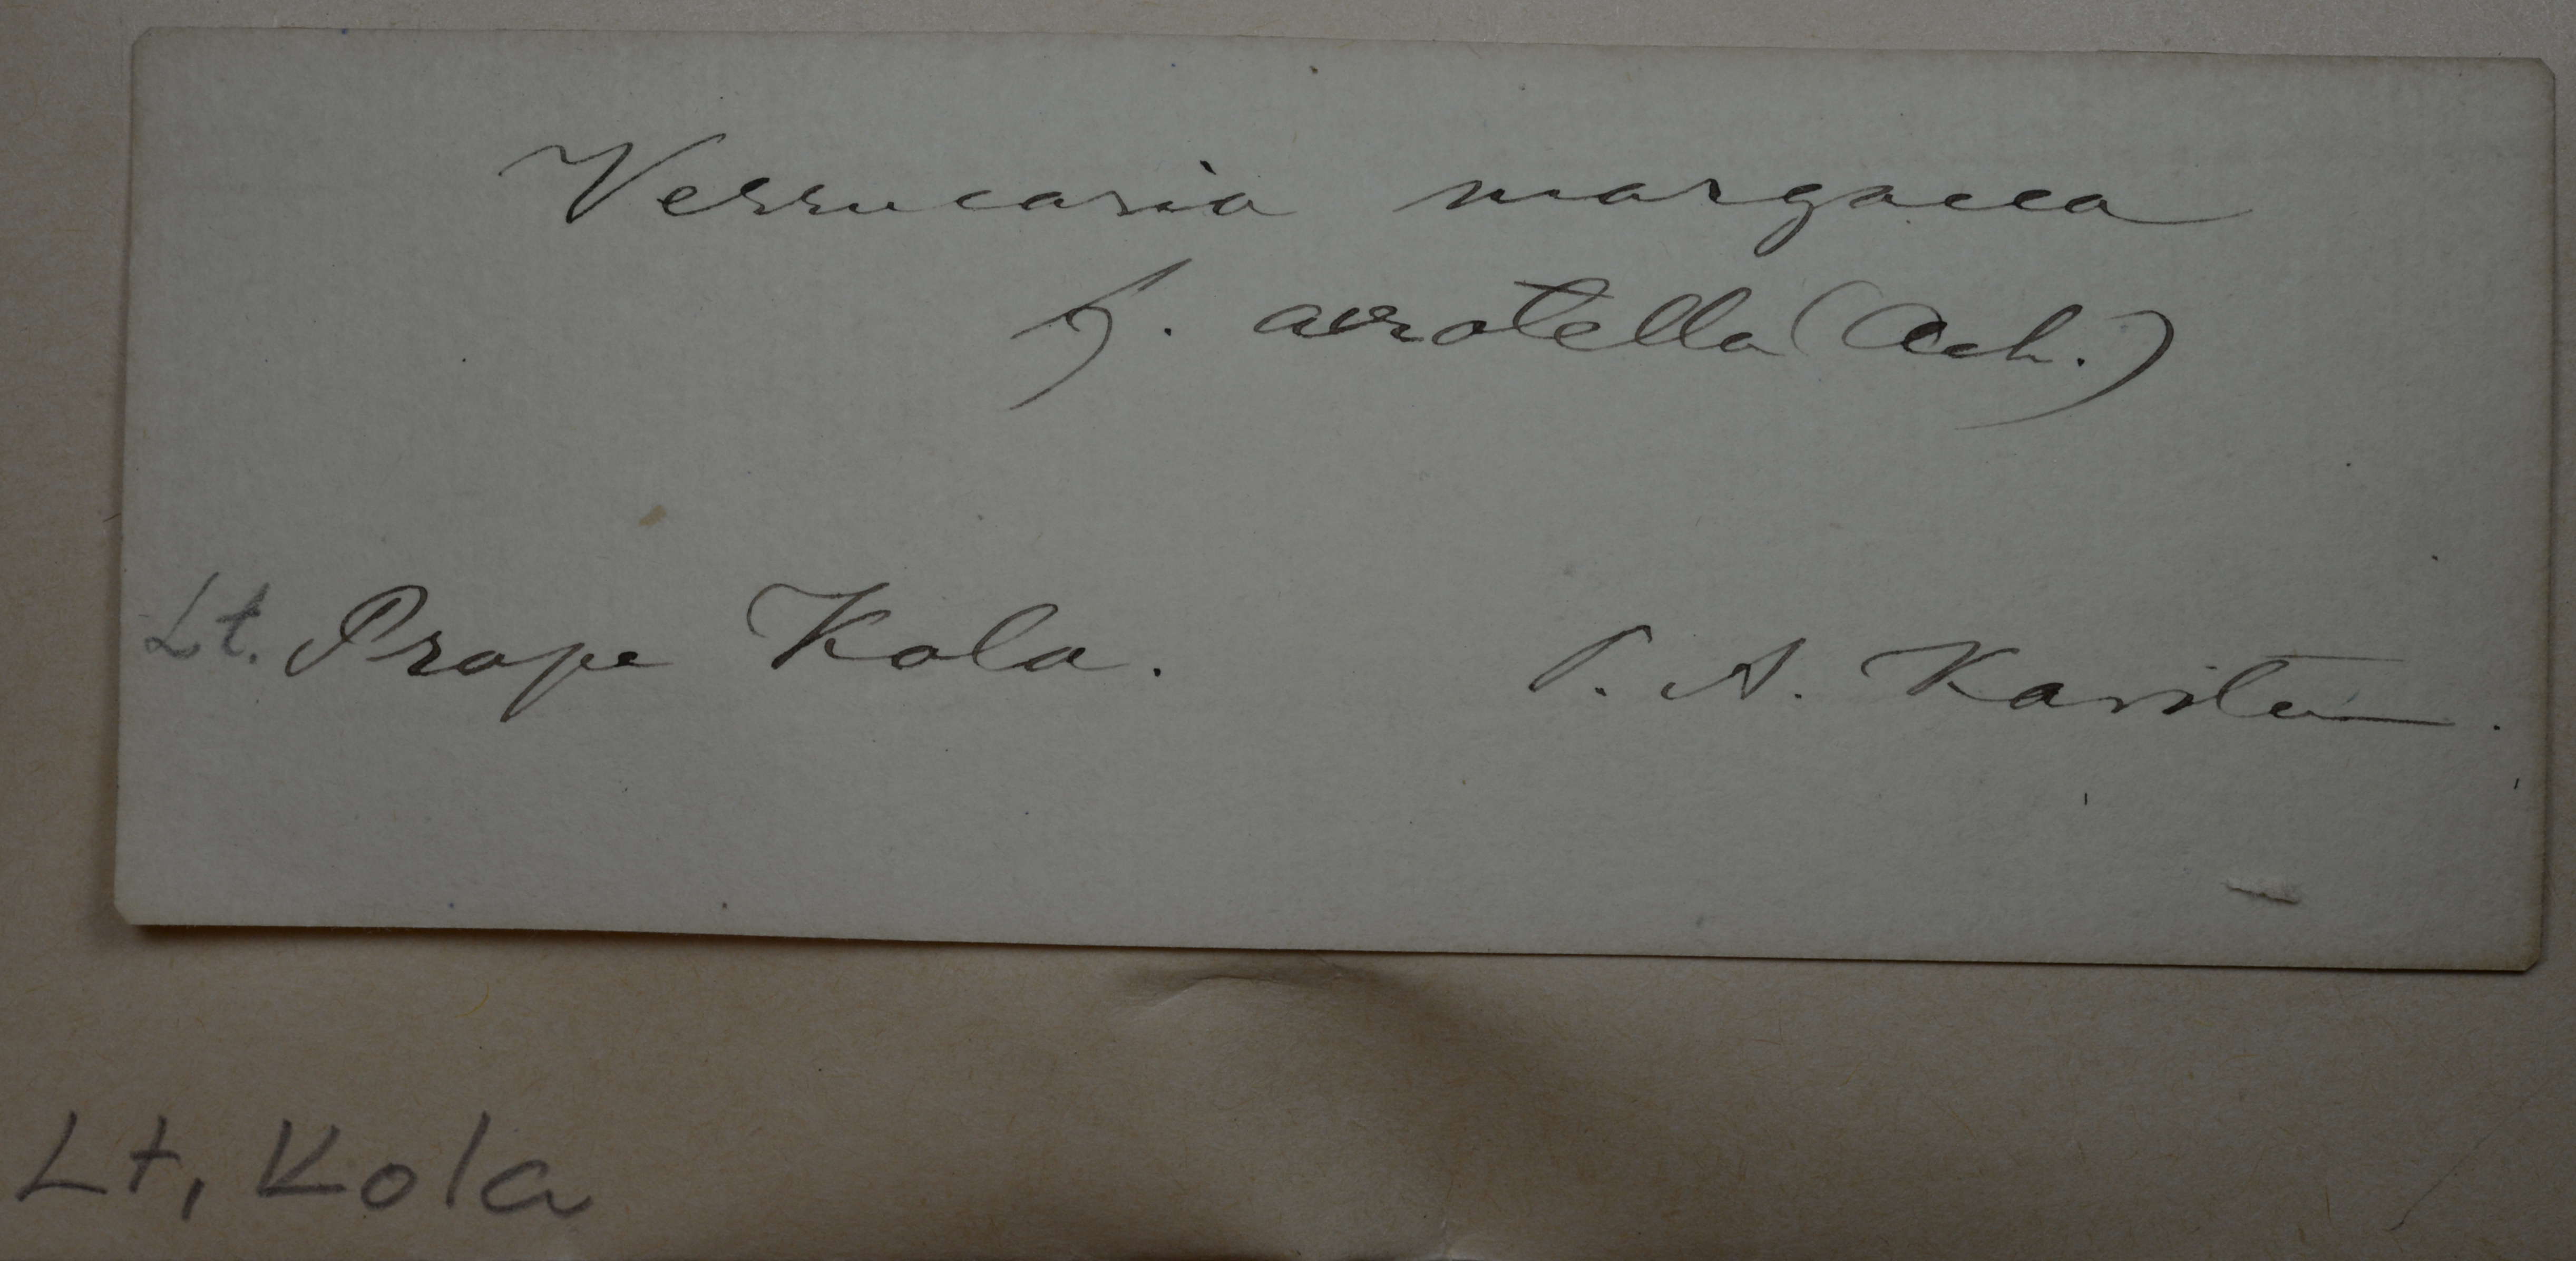 Verrucaria margacea
f. acrotella (Ach.)
Lt. Prope Kola. P. A. Karsten.
Lt, Kola